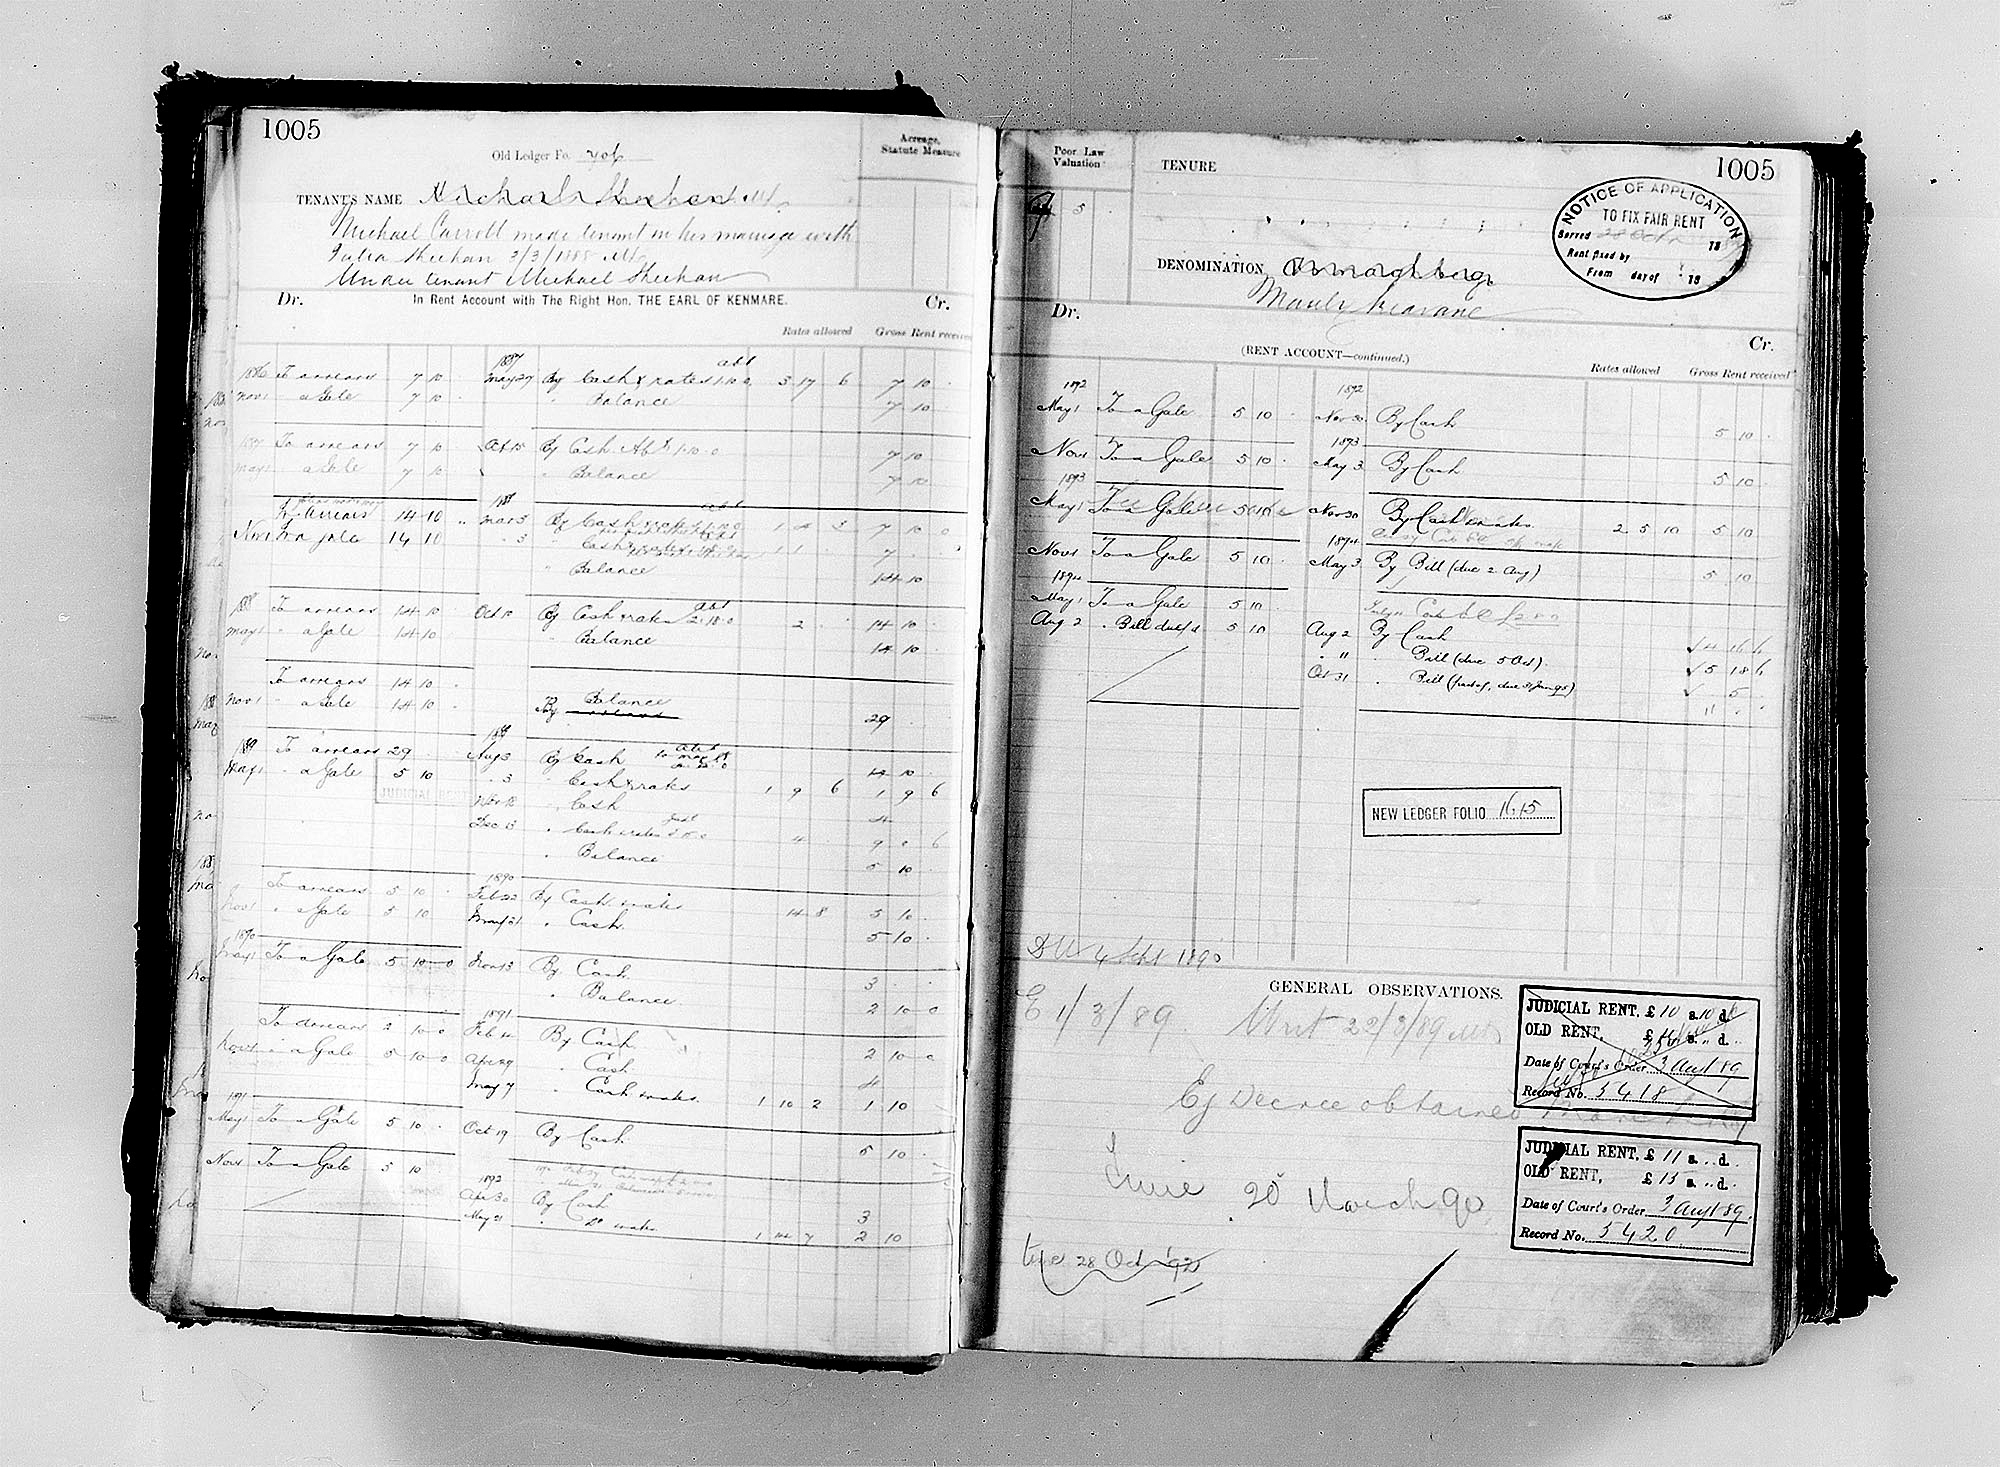 1005
Old Ledger Fo. 706
Acreage,
Statute Measure
TENANT'S NAME Michael Sheehan
Michael Carroll made tenant on his marriage with
Julia Sheehan 3/3/1888
Under tenant Michael Sheehan
Dr. In Rent Account with The Right Hon. THE EARL OF KENMARE. Cr.
Rates allowed Gross Rent received
1887 abt
1886 To arrears 7 10 May 27 By Cash & rates 1.10.0 3 17 6 7 10
Nov 1 " a Gale 7 10 " Balance 7 10
1887 To arrears 7 10 Oct 15 By Cash Abt 1-10-0 7 10
May 1 a Gale 7 10 " Balance 7 10
To Arrears 14 10 Mar 3 By Cash & rates 7 10 0
Nov 1 To a gale 14 10 " 3 Cash & rates 7
" Balance 14 10
1888 To arrears 14 10 Oct 10 By Cash & rates 2.18.0 2 14 10
May 1 " a Gale 14 10 " Balance 14 10
To arrears 14 10 Balance
Nov 1 " a Gale 14 10 By 29
1889 To arrears 29 Aug 3 By Cash 14 10
May 1 " a Gale 5 10 " 3 Cash & rates 1 9 6 1 9 6
JUDICIAL RENT Nov 18 " Cash 4
Dec 13 " Cash & rates 4 9 0 6
" Balance 5 10
1890
To arrears 5 10 Feb 22 By Cash & rates 14 8 5 10
Nov 1 " a Gale 5 10 May 21 " Cash 5 10
1890
May 1 To a Gale 5 10 0 Nov 13 By Cash 3
" Balance 2 10 0
1891
To arrears 2 10 0 Feb 4 By Cash 2 10 0
Nov 1 " a Gale 5 10 0 Apr 29 " Cash 4
May 7 " Cash & rates 1 10 2 1 10
1891
May 1 To a Gale 5 10 Oct 19 By Cash 5 10
Nov 1 To a Gale 5 10
1892
Apr 30 By Cash 3
May 21 " Do & rates 1 14 7 2 10
Poor Law
Valuation
TENURE
1005
5
NOTICE OF APPLICATION
TO FIX FAIR RENT
Served 28 Oct 18
Rent fixed by
From day of 18
DENOMINATION
Dr.
Cr.
(RENT ACCOUNT—continued.)
Rates allowed Gross Rent received
1892 1892
May 1 To a Gale 5 10 Nov 30 By Cash 5 10
1893
Nov 1 To a Gale 5 10 May 3 By Cash 5 10
1893
May 1 To a Gale 5 10 Nov 30 By Cash & rates 2 5 10 5 10
1894
Nov 1 To a Gale 5 10 May 3 By Bill (due 2 Aug) 5 10
1894
May 1 To a Gale 5 10
Aug 2 " Bill due 5 10 Aug 2 By Cash 4 16 6
" 11 " Bill (due 5 Oct) 5 18 6
Oct 31 " Bill 5
11
NEW LEDGER FOLIO 1615
4 Sept 1890
GENERAL OBSERVATIONS.
E 1/3/89 Writ 22/3/89
Ej Decree obtained
20 March 90
28 Oct 92
JUDICIAL RENT, £ 10 s. 10 d. 0
OLD RENT, £ s. " d.
Date of Court's Order 3 Augt 89
Record No. 5418
JUDICIAL RENT, £ 11 s. " d.
OLD RENT, £ 15 s. " d.
Date of Court's Order 3 Augt 89.
Record No. 5420